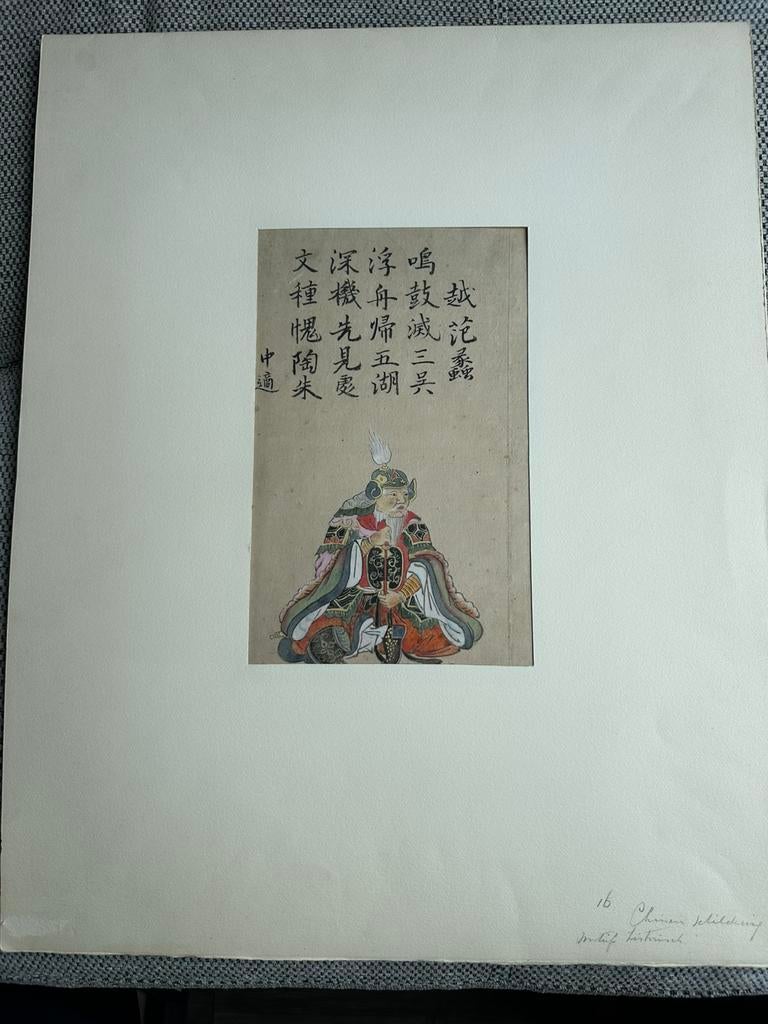 越范蠡
鳴鼓滅三吳
浮舟歸五湖
深機先見處
文種愧陶朱
中適
16